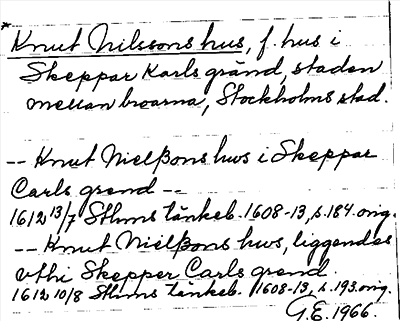 * Knut Nilssons hus, f. hus i
Skeppar Karls gränd, staden
mellan broarna, Stockholms stad.
-- Knut Nielßons hws i Skeppar
Carls grend --
1612 13/7 Sthms tänkeb. 1608-13, s. 184. orig.
-- Knut Nielßons hws, liggendes
vthi Skepper Carls grend.
1612 10/8 Sthms tänkeb. 1608-13, s. 193. orig.
G.E. 1966.